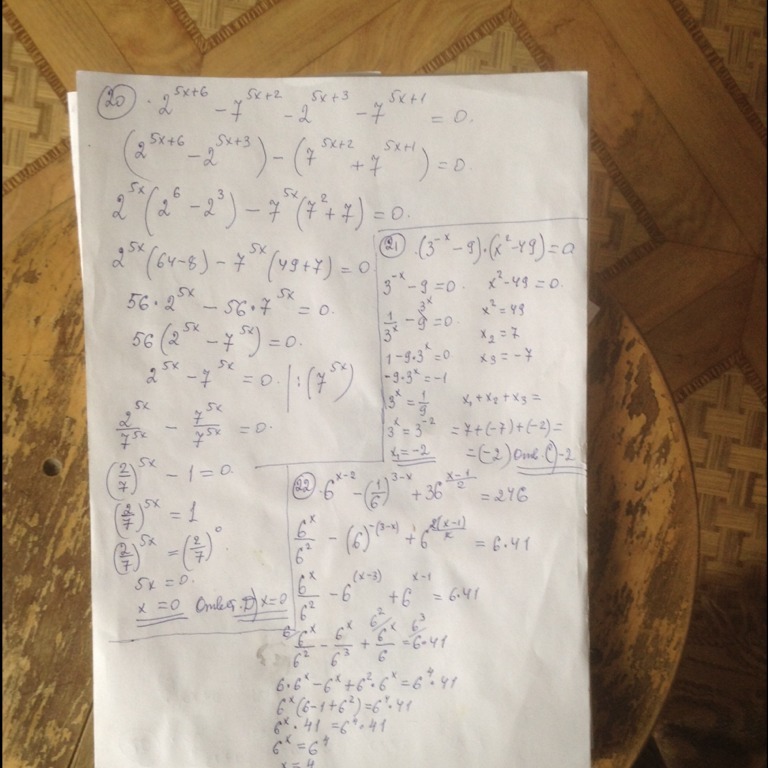 20) 2^{5x+6} - 7^{5x+2} - 2^{5x+3} - 7^{5x+1} = 0.
(2^{5x+6} - 2^{5x+3}) - (7^{5x+2} + 7^{5x+1}) = 0.
2^{5x}(2^6 - 2^3) - 7^{5x}(7^2 + 7) = 0.
2^{5x}(64-8) - 7^{5x}(49+7) = 0
56·2^{5x} - 56·7^{5x} = 0.
56(2^{5x} - 7^{5x}) = 0.
2^{5x} - 7^{5x} = 0. | :(7^{5x})
2^{5x}/7^{5x} - 7^{5x}/7^{5x} = 0.
(2/7)^{5x} - 1 = 0.
(2/7)^{5x} = 1
(2/7)^{5x} = (2/7)^0
5x = 0.
x = 0 Ответ. D) x=0
21) (3^{-x} - 9)·(x^2 - 49) = 0
3^{-x} - 9 = 0. x^2 - 49 = 0.
1/3^x - 9^{3^x} = 0. x^2 = 49
1 - 9·3^x = 0 x_2 = 7
-9·3^x = -1 x_3 = -7
3^x = 1/9 x_1 + x_2 + x_3 =
3^x = 3^{-2} = 7 + (-7) + (-2) =
x_1 = -2 = (-2) Отв. C) -2
22) 6^{x-2} - (1/6)^{3-x} + 36^{(x-1)/2} = 246
6^x/6^2 - (6)^{-(3-x)} + 6^{2(x-1)/2} = 6·41
6^x/6^2 - 6^{(x-3)} + 6^{x-1} = 6·41
6 6^x/6^2 - 6^x/6^3 + 6^2/ 6^x/6 = 6^3/ 6·41
6·6^x - 6^x + 6^2·6^x = 6^4·41
6^x(6-1+6^2) = 6^4·41
6^x·41 = 6^4·41
6^x = 6^4
x = 4